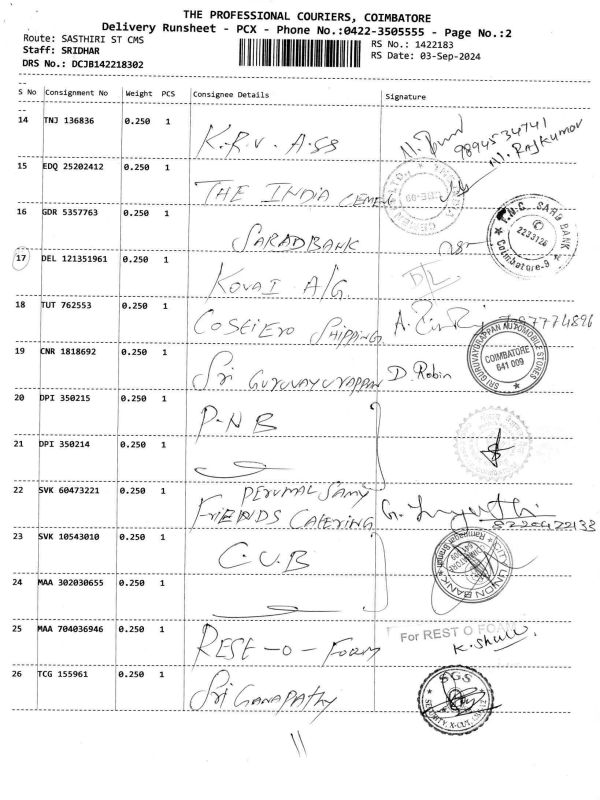 THE PROFESSIONAL COURIERS, COIMBATORE
Delivery Runsheet - PCX - Phone No.:0422-3505555 - Page No.:2
Route: SASTHIRI ST CMS
Staff: SRIDHAR
DRS No.: DCJB142218302
RS No.: 1422183
RS Date: 03-Sep-2024
S No Consignment No Weight PCS Consignee Details Signature
14 TNJ 136836 0.250 1 K.R.V. A.SS
9894534741
N. Rajkumar
15 EDQ 25202412 0.250 1 THE INDIA CEMEN
16 GDR 5357763 0.250 1 SARADBANK
T.N.C. SARD BANK
2233126
Coimbatore-9
17 DEL 121351961 0.250 1 KOVAI A/G D/L
18 TUT 762553 0.250 1 Shipping
19 CNR 1818692 0.250 1 Sri GURUVAYURAPPAN D. Robin
SRI GURUVAYURAPPAN AUTOMOBILE STORES
COIMBATORE
641 009
20 DPI 350215 0.250 1 P.N.B
21 DPI 350214 0.250 1
22 SVK 60473221 0.250 1 PERUMAL SAMY
FRIENDS CATERING
8220472133
23 SVK 10543010 0.250 1 C.U.B
CITY UNION BANK
24 MAA 302030655 0.250 1
25 MAA 704036946 0.250 1 REST-O-FORM
For REST O FOAM
26 TCG 155961 0.250 1 Sri GANAPATHY
SGS